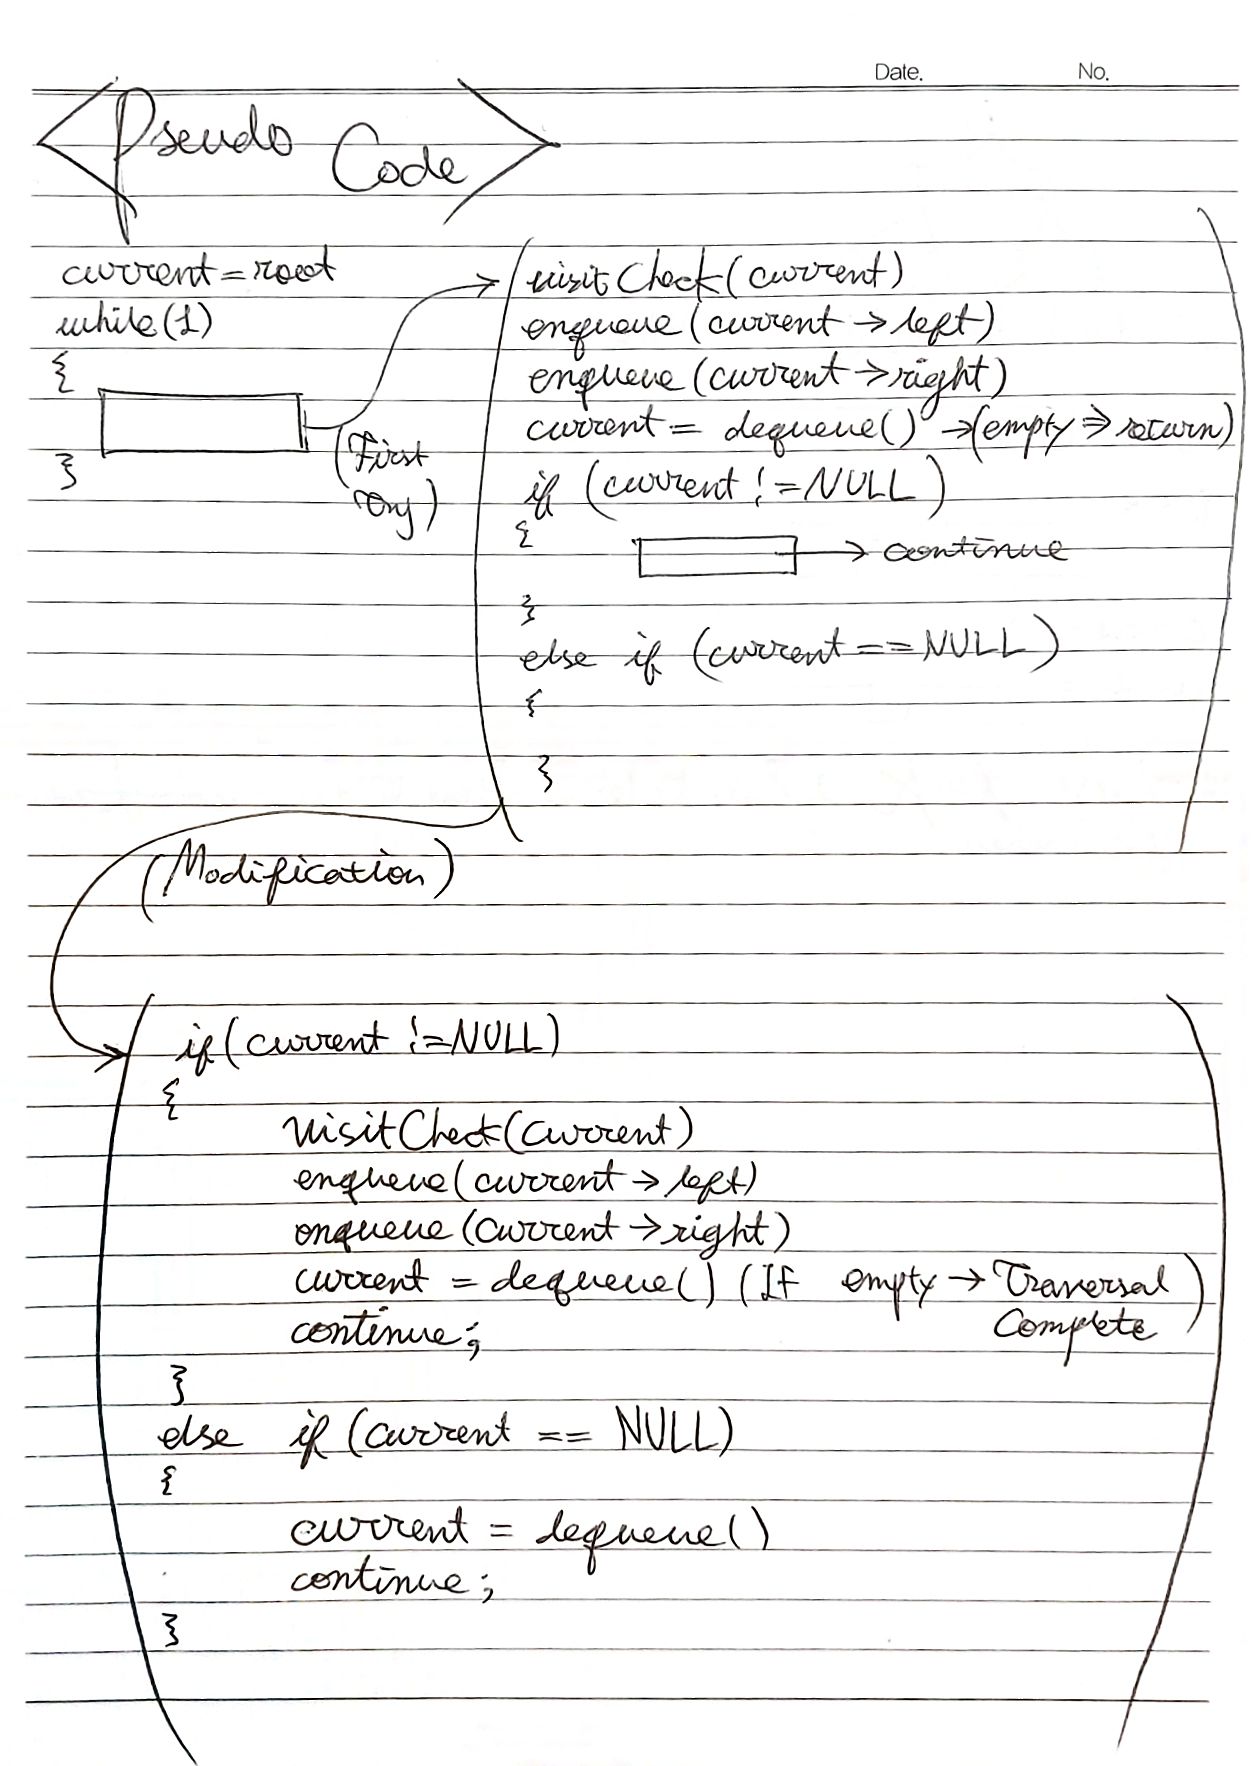 Date. No.
Pseudo Code
current = root
while(1)
{
}
(First Try)
visitCheck(current)
enqueue(current → left)
enqueue(current → right)
current = dequeue() → (empty ⇒ return)
if (current != NULL)
{
→ continue
}
else if (current == NULL)
{
}
(Modification)
if(current != NULL)
{
visitCheck(current)
enqueue(current → left)
enqueue(current → right)
current = dequeue() (If empty → Traversal
Complete)
continue;
}
else if (current == NULL)
{
current = dequeue()
continue;
}